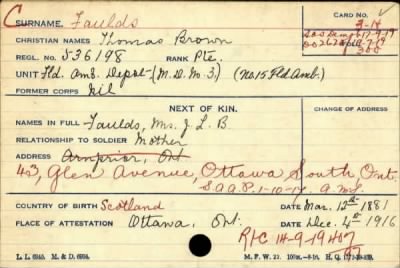 C
SURNAME. Faulds
CARD NO.
CHRISTIAN NAMES Thomas Brown
REGL. NO. 536198 RANK Pte.
UNIT Fld. Amb. Depot (M.D.M.3.) (No 15 Fld Amb.)
FORMER CORPS nil
NEXT OF KIN.
CHANGE OF ADDRESS
NAMES IN FULL Faulds, Mrs. J. L. B.
RELATIONSHIP TO SOLDIER Mother
ADDRESS Arnprior, Ont
43, Glen Avenue, Ottawa South Ont.
COUNTRY OF BIRTH Scotland DATE Mar. 12th 1881
PLACE OF ATTESTATION Ottawa, Ont. DATE Dec. 4th 1916
M. F. W. 22.